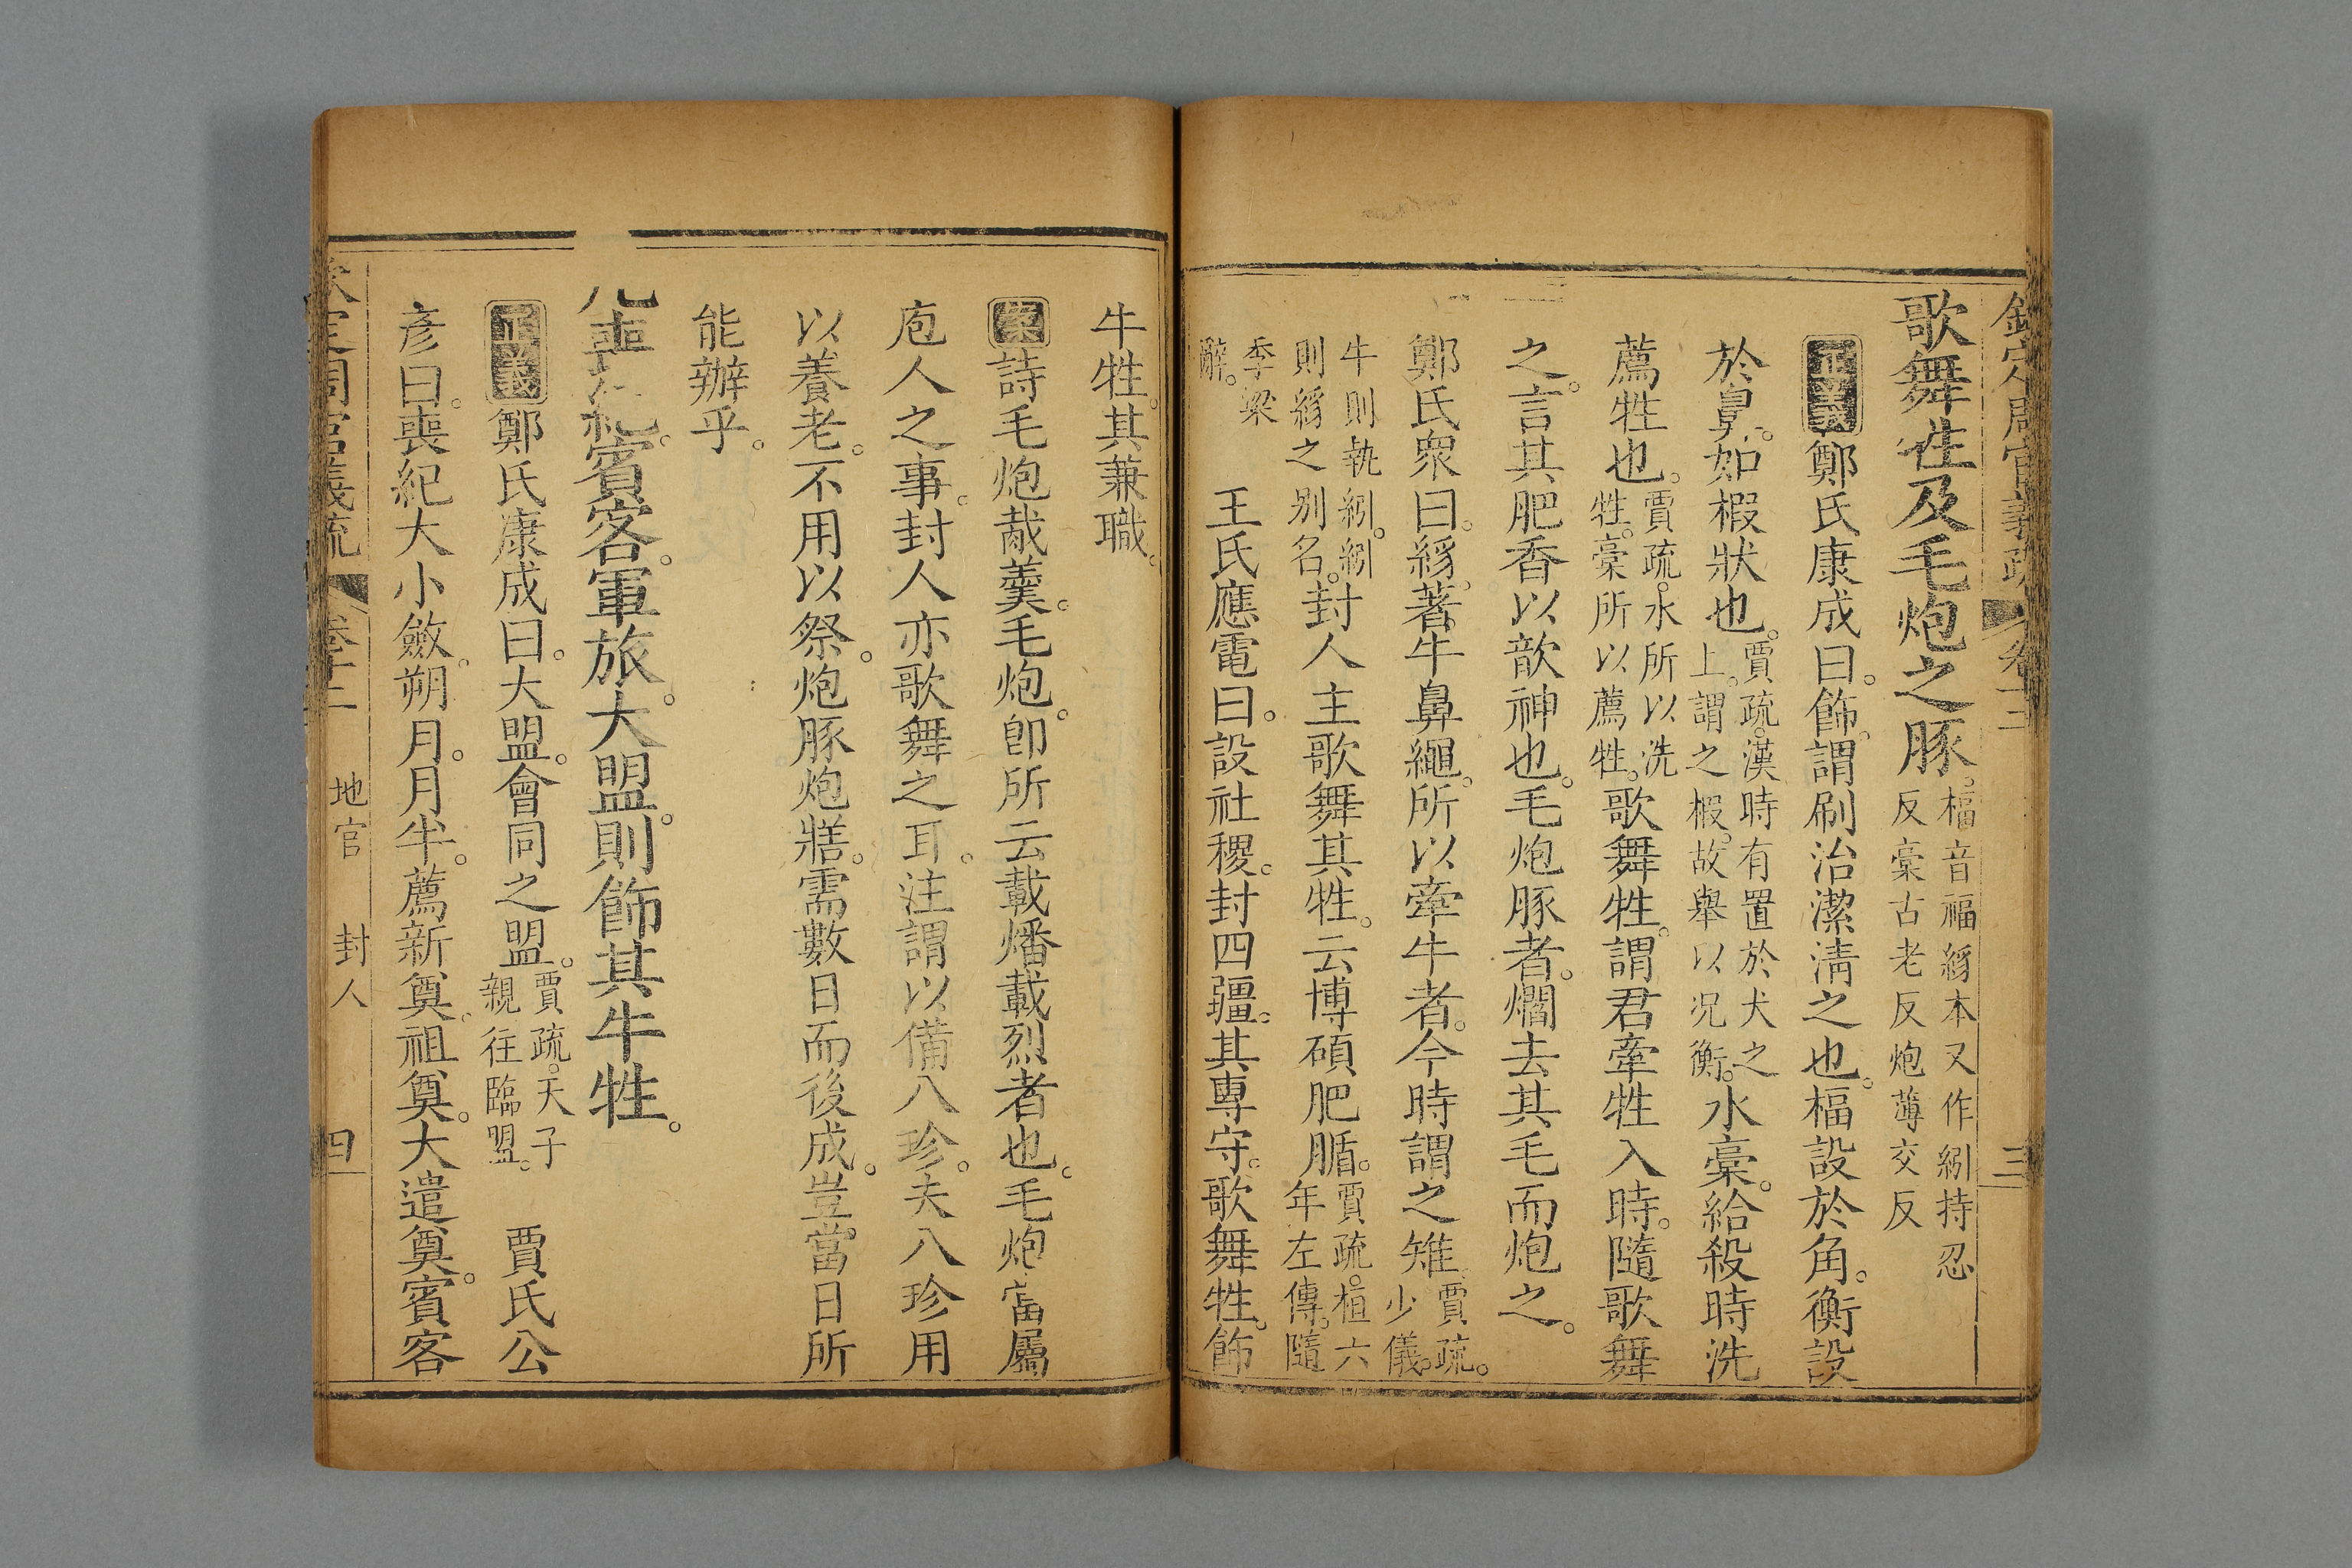 欽定周官義疏 卷十二 三
歌舞牲及毛炮之豚。楅音福絼本又作紖持忍反稾古老反炮薄交反
正義鄭氏康成曰。飾。謂刷治潔淸之也。楅設於角。衡設
於鼻。如椵狀也。賈疏。漢時有置於犬之上。謂之椵。故舉以况衡。水稾。給殺時洗
薦牲也。賈疏。水所以洗牲。稾所以薦牲。歌舞牲。謂君牽牲入時。隨歌舞
之。言其肥香以歆神也。毛炮豚者。爓去其毛而炮之。
鄭氏衆曰。絼。著牛鼻繩。所以牽牛者。今時謂之雉。賈疏。少儀。
牛則執紖。紖則絼之别名。封人主歌舞其牲。云博碩肥腯。賈疏。桓六年左傳。隨
季梁辭。 王氏應電曰。設社稷。封四疆。其專守。歌舞牲。飾
牛牲。其兼職。
案詩毛炮胾羹。毛炮。卽所云載燔載烈者也。毛炮當屬
庖人之事。封人亦歌舞之耳。注謂以備八珍。夫八珍用
以養老。不用以祭。炮豚炮牂。需數日而後成。豈當日所
能辦乎。
凡喪紀。賓客。軍旅。大盟。則飾其牛牲。
正義鄭氏康成曰。大盟。會同之盟。賈疏。天子親往臨盟。 賈氏公
彥曰。喪紀大小斂。朔月。月半。薦新奠。祖奠。大遣奠。賓客
欽定周官義疏 卷十二 地官 封人 四